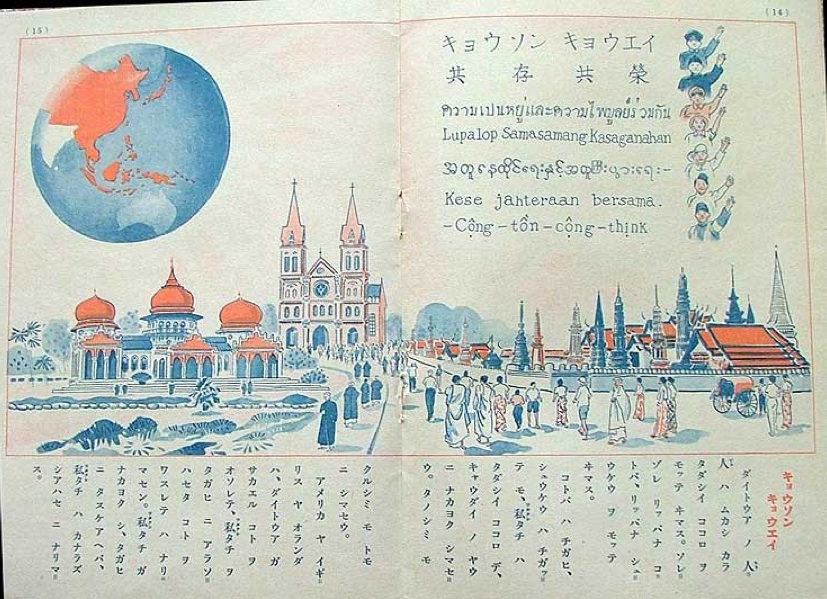 (14)
キョウソン キョウエイ
共 存 共 榮
ความเปนหยู่และความไพบูลย์ร่วมกัน
Lupalop Samasamang Kasaganahan
Kese jahteraan bersama.
-Cộng-tồn-cộng-thịnh
キョウソン
キョウエイ
ダイトウア ノ 人
人 ハ ムカシ カラ
タダシイ ココロ ヲ
モッテ ヰマス。ソレ
ゾレ リッパナ コ
トバ、リッパナ シュ
ウケウ ヲ モッテ
ヰマス。
コトバ ハ チガヒ、
シュウケウ ハ チガッ
テ モ、私タチ ハ
タダシイ ココロ デ、
キャウダイ ノ ヤウ
ニ ナカヨク シマセ
ウ。タノシミ モ
(15)
クルシミ モ トモ
ニ シマセウ。
アメリカ ヤ イギ
リス ヤ オランダ
ハ、ダイトウア ガ
サカエル コト ヲ
オソレテ、私タチ ヲ
タガヒ ニ アラソ
ハセタ コト ヲ
ワスレテ ハ ナリ
マセン。私タチ ガ
ナカヨク シ、タガヒ
ニ タスケアヘバ、
私タチ ハ カナラズ
シアハセ ニ ナリマ
ス。